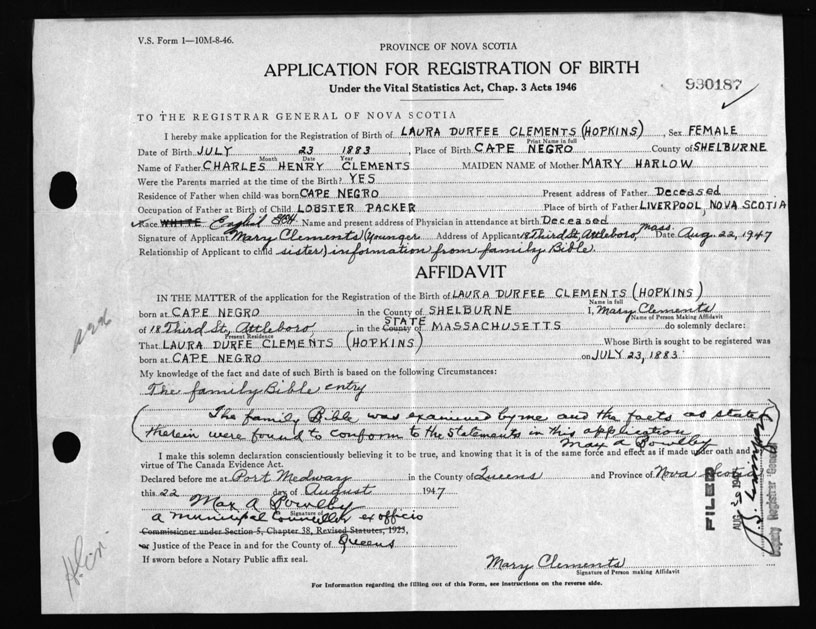 V.S. Form 1—10M-8-46.
PROVINCE OF NOVA SCOTIA
APPLICATION FOR REGISTRATION OF BIRTH
Under the Vital Statistics Act, Chap. 3 Acts 1946
930187
TO THE REGISTRAR GENERAL OF NOVA SCOTIA
I hereby make application for the Registration of Birth of LAURA DURFEE CLEMENTS (HOPKINS), Sex FEMALE
Print Name in full
Date of Birth JULY 23 1883, Place of Birth CAPE NEGRO County of SHELBURNE
Month Date Year
Name of Father CHARLES HENRY CLEMENTS MAIDEN NAME of Mother MARY HARLOW
Were the Parents married at the time of the Birth? YES
Residence of Father when child was born CAPE NEGRO Present address of Father Deceased
Occupation of Father at Birth of Child LOBSTER PACKER Place of birth of Father LIVERPOOL, NOVA SCOTIA
Race WHITE English Name and present address of Physician in attendance at birth Deceased
Signature of Applicant Mary Clements (Younger Address of Applicant 18 Third St, Attleboro, Mass. Date Aug. 22, 1947
Relationship of Applicant to child sister) information from family Bible.
AFFIDAVIT
IN THE MATTER of the application for the Registration of the Birth of LAURA DURFEE CLEMENTS (HOPKINS)
Name in full
born at CAPE NEGRO in the County of SHELBURNE I, Mary Clements
Name of Person Making Affidavit
of 18 Third St, Attleboro, in the County of STATE MASSACHUSETTS do solemnly declare:
Present Residence
That LAURA DURFE CLEMENTS (HOPKINS) Whose Birth is sought to be registered was
born at CAPE NEGRO on JULY 23, 1883.
My knowledge of the fact and date of such Birth is based on the following Circumstances:
The family Bible entry
(The family Bible was examined by me and the facts as stated
therein were found to conform to the statements in this application
May A Bowlby
I make this solemn declaration conscientiously believing it to be true, and knowing that it is of the same force and effect as if made under oath and
virtue of The Canada Evidence Act.
Declared before me at Port Medway in the County of Queens and Province of Nova Scotia
this 22 day of August 1947
Max A Bowlby
Signature of
a Municipal Councillor ex officio
Commissioner under Section 5, Chapter 38, Revised Statutes, 1923,
or Justice of the Peace in and for the County of Queens
If sworn before a Notary Public affix seal.
Mary Clements
Signature of Person making Affidavit
For Information regarding the filling out of this Form, see instructions on the reverse side.
FILED
AUG 1947
Deputy Registrar General